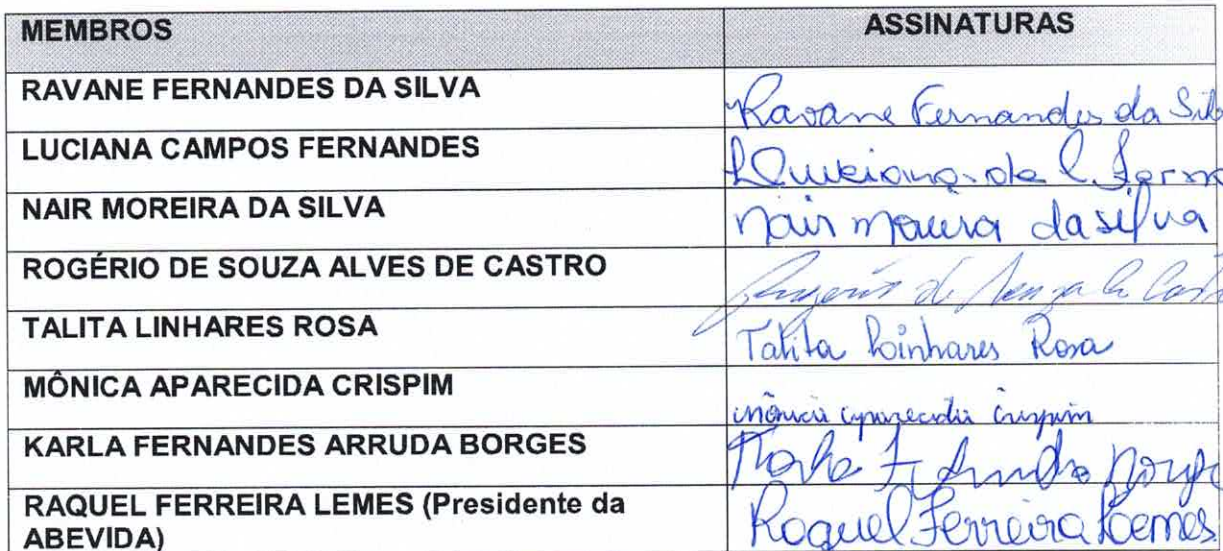 MEMBROS ASSINATURAS
RAVANE FERNANDES DA SILVA Ravane Fernandes da Silv
LUCIANA CAMPOS FERNANDES Luciana de C. Fern
NAIR MOREIRA DA SILVA Nair moreira da silva
ROGÉRIO DE SOUZA ALVES DE CASTRO Rogério de Souza
TALITA LINHARES ROSA Talita Linhares Rosa
MÔNICA APARECIDA CRISPIM mônica aparecida crispim
KARLA FERNANDES ARRUDA BORGES Karla F. Arruda Borge
RAQUEL FERREIRA LEMES (Presidente da
ABEVIDA) Raquel Ferreira Lemes